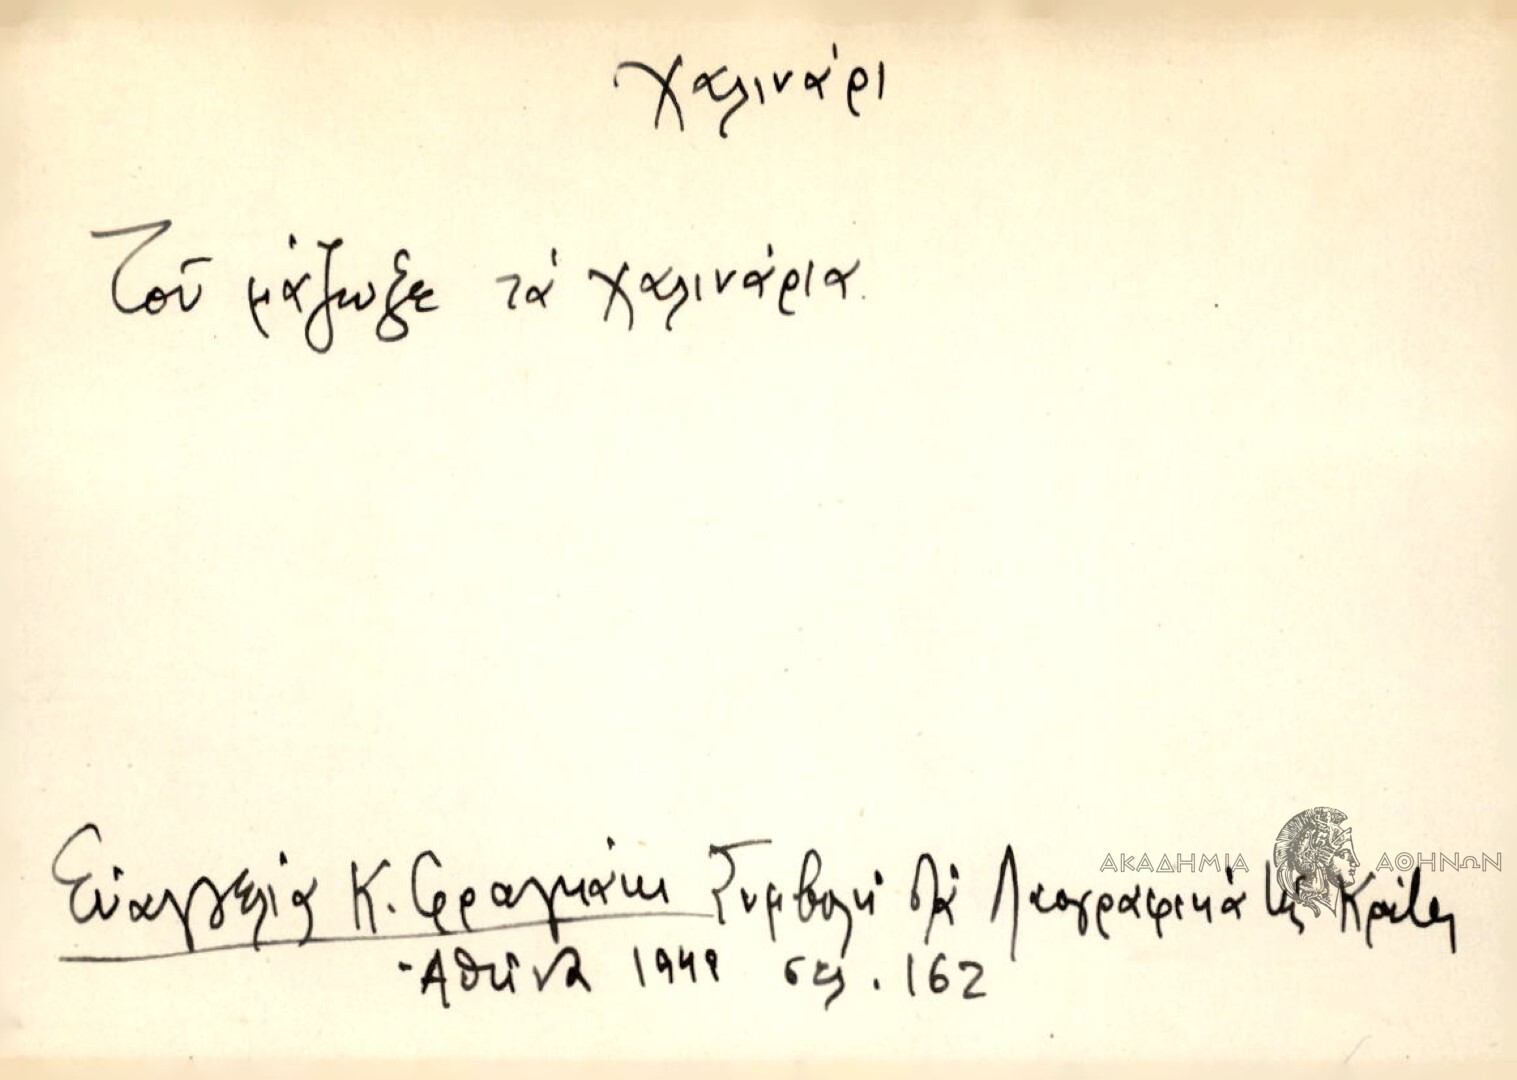 χαλινάρι
Τοῦ μάζωξε τά χαλινάρια.
ΑΚΑΔΗΜΙΑ ΑΘΗΝΩΝ
Εὐαγγελία Κ. Φραγκάκι Συμβολή στά Λαογραφικά τῆς Κρήτης
Ἀθήνα 1949 σελ. 162